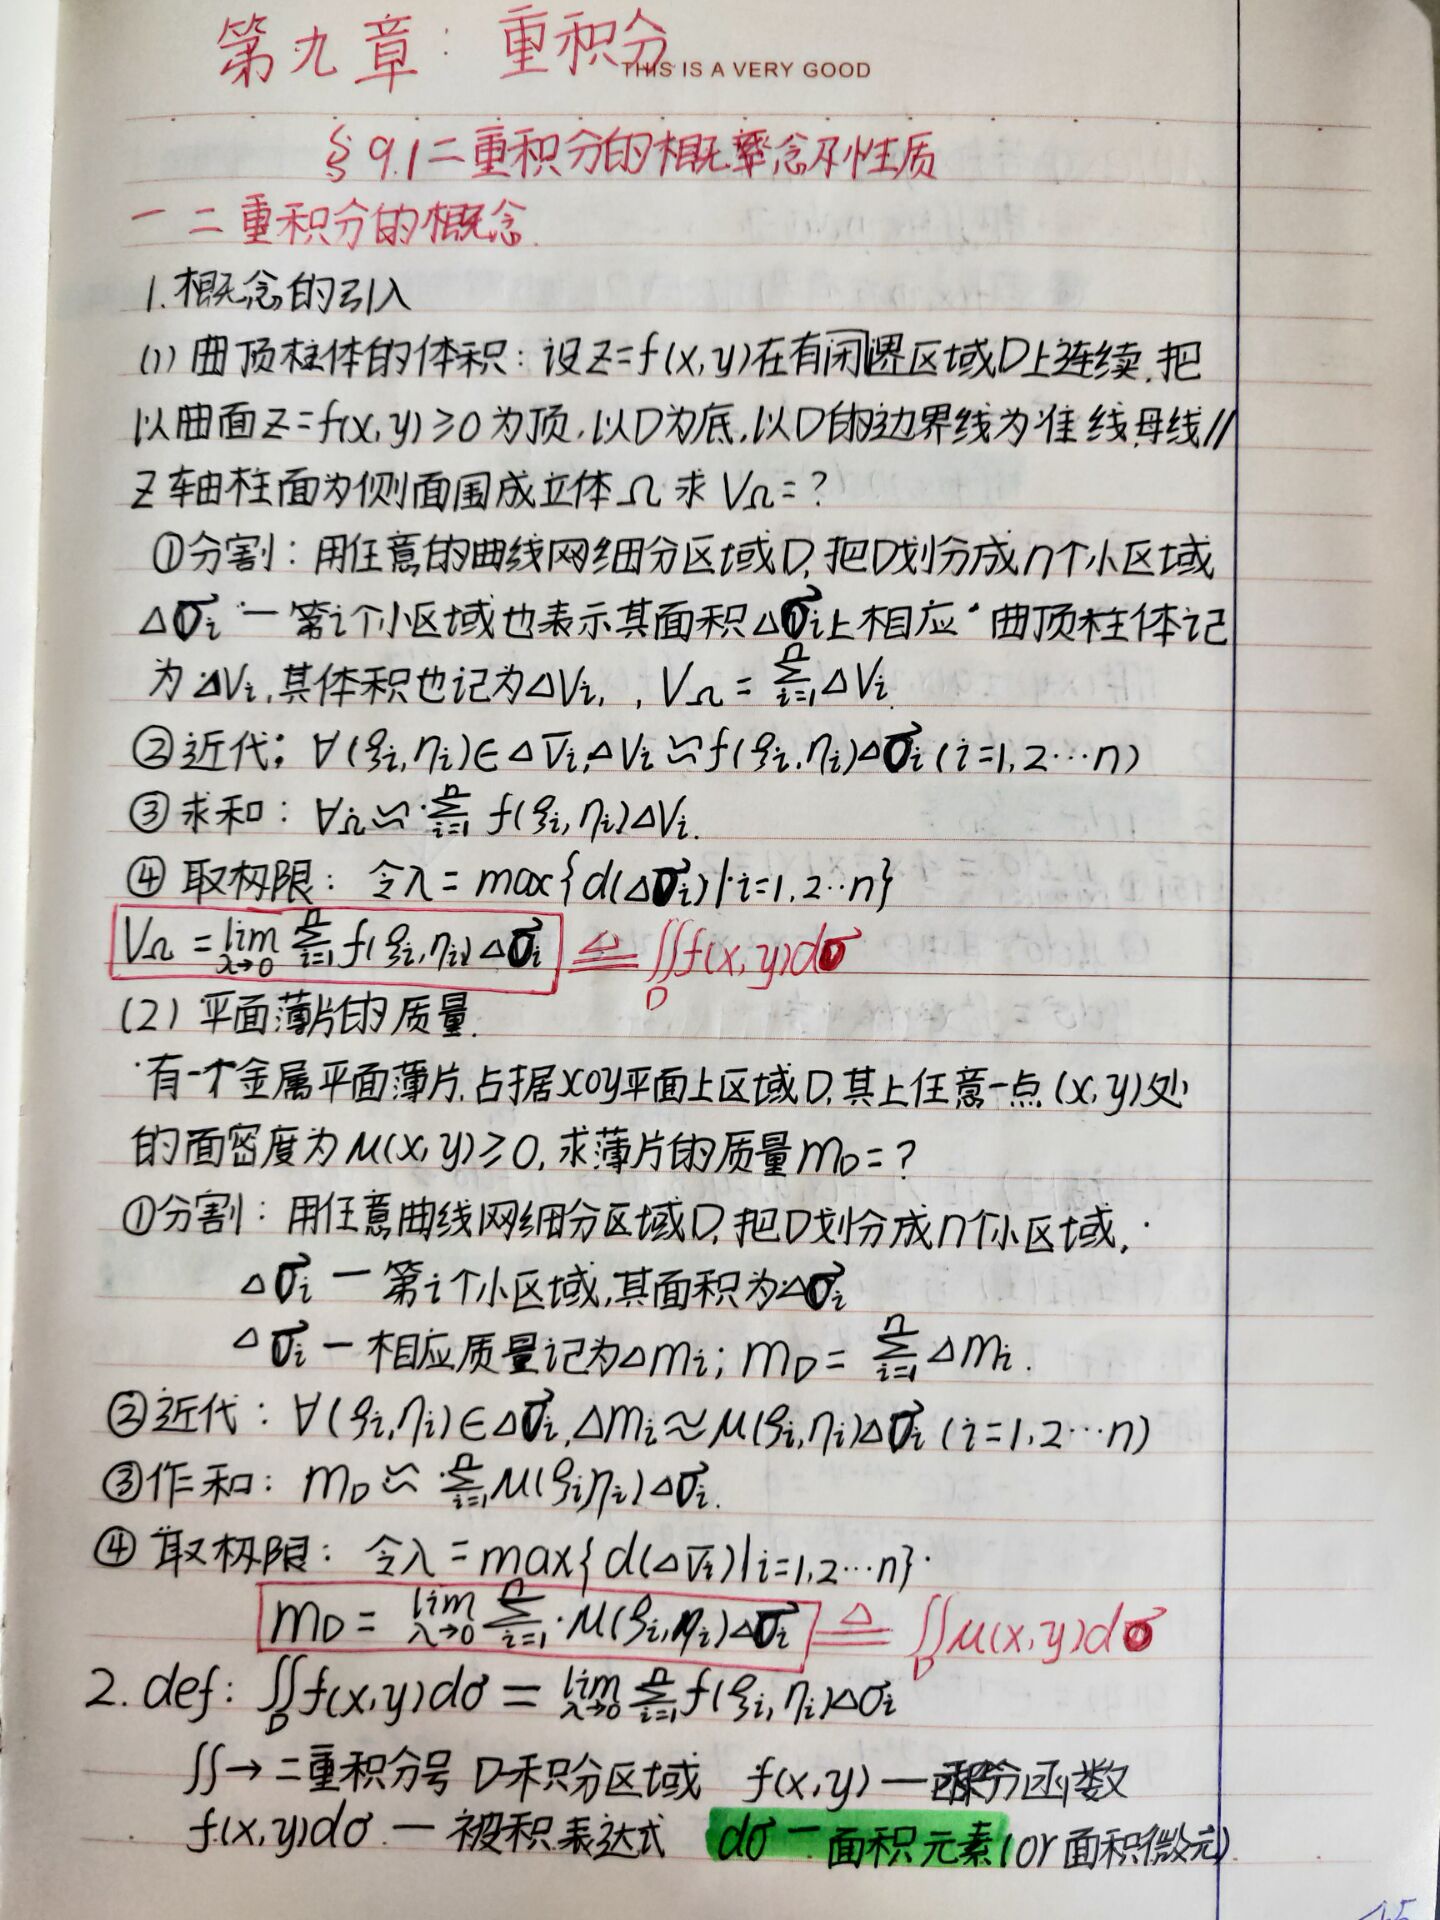 第九章：重积分
THIS IS A VERY GOOD
§9.1二重积分的概念及性质
一 二重积分的概念.
1.概念的引入
(1) 曲顶柱体的体积：设z=f(x,y)在有闭界区域D上连续,把
以曲面z=f(x,y)≥0为顶,以D为底,以D的边界线为准线,母线//
z轴柱面为侧面围成立体Ω求VΩ=?
①分割：用任意的曲线网细分区域D,把D划分成n个小区域
Δσi 一第i个小区域也表示其面积Δσi上相应·曲顶柱体记
为ΔVi,其体积也记为ΔVi, , VΩ=∑(i=1→n)ΔVi.
②近代：∀(ξi,ηi)∈Δσi,ΔVi≈f(ξi,ηi)Δσi(i=1,2…n)
③求和：∀Ω≈∑(i=1→n) f(ξi,ηi)ΔVi.
④取极限：令λ=max{d(Δσi)|i=1,2…n}
VΩ=lim(λ→0)∑(i=1→n)f(ξi,ηi)Δσi ≜ ∬_D f(x,y)dσ
(2) 平面薄片的质量.
有一个金属平面薄片,占据xoy平面上区域D,其上任意一点(x,y)处
的面密度为μ(x,y)≥0,求薄片的质量mD=?
①分割：用任意曲线网细分区域D,把D划分成n个小区域,
Δσi 一第i个小区域,其面积为Δσi
Δσi一相应质量记为Δmi; mD=∑(i=1→n)Δmi.
②近代：∀(ξi,ηi)∈Δσi,Δmi≈μ(ξi,ηi)Δσi(i=1,2…n)
③作和：mD≈∑(i=1→n)μ(ξi,ηi)Δσi.
④取极限：令λ=max{d(Δσi)|i=1,2…n}.
mD=lim(λ→0)∑(i=1→n)μ(ξi,ηi)Δσi ≜ ∬_D μ(x,y)dσ
2. def: ∬_D f(x,y)dσ=lim(λ→0)∑(i=1→n)f(ξi,ηi)Δσi
∬→二重积分号 D-积分区域 f(x,y)—积分函数
f(x,y)dσ.一被积表达式 dσ一面积元素(or面积微元).